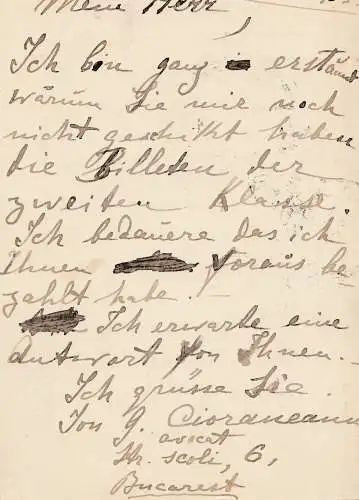 Mein Herr!
Ich bin ganz erstaunt
warum Sie mir noch
nicht geschikt haben
die Billeten der
zweiten Klasse.
Ich bedauere das ich
Ihnen voraus be-
zahlt habe. —
Ich erwarte eine
Antwort von Ihnen. —
Ich grüsse Sie.
Ion G. Cioraneanu
avocat
Str. scoli, 6,
Bucarest